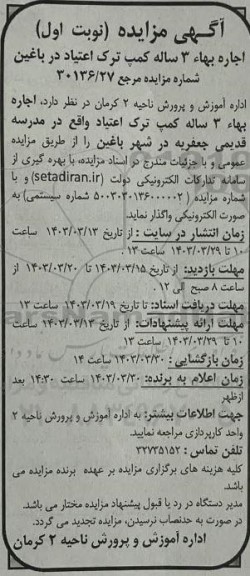 آگهی مزایده (نوبت اول)
اجاره بهاء ۳ ساله کمپ ترک اعتیاد در باغین
شماره مزایده مرجع ۳۰۱۳۶/۲۷
اداره آموزش و پرورش ناحیه ۲ کرمان در نظر دارد، اجاره
بهاء ۳ ساله کمپ ترک اعتیاد واقع در مدرسه
قدیمی جعفریه در شهر باغین را از طریق مزایده
عمومی و با جزئیات مندرج در اسناد مزایده، با بهره گیری از
سامانه تدارکات الکترونیکی دولت (setadiran.ir) و با
شماره مزایده ( ۵۰۰۳۰۳۰۱۳۶۰۰۰۰۰۲ شماره سیستمی) به
صورت الکترونیکی واگذار نماید.
زمان انتشار در سایت : از تاریخ ۱۴۰۳/۰۳/۱۳ ساعت
۱۰ تا ۱۴۰۳/۰۳/۲۹ ساعت ۱۳ .
مهلت بازدید: از تاریخ ۱۴۰۳/۰۳/۱۵ تا ۱۴۰۳/۰۳/۲۰ از
ساعت ۸ صبح الی ۱۲ .
مهلت دریافت اسناد: تا تاریخ ۱۴۰۳/۰۳/۱۹ ساعت ۱۳
مهلت ارائه پیشنهادات: از تاریخ ۱۴۰۳/۰۳/۱۳ ساعت
۱۰ تا ۱۴۰۳/۰۳/۲۹ ساعت ۱۳
زمان بازگشایی : ۱۴۰۳/۰۳/۳۰ ساعت ۱۴
زمان اعلام به برنده: ۱۴۰۳/۰۳/۳۰ ساعت ۱۴:۳۰ بعد
ازظهر
جهت اطلاعات بیشتر: به اداره آموزش و پرورش ناحیه ۲
واحد کارپردازی مراجعه نمایید.
تلفن تماس : ۳۲۷۳۵۱۵۲
کلیه هزینه های برگزاری مزایده بر عهده برنده مزایده می
باشد.
مدیر دستگاه در رد یا قبول پیشنهاد مزایده مختار می باشد.
در صورت به حدنصاب نرسیدن، مزایده تجدید می گردد.
اداره آموزش و پرورش ناحیه ۲ کرمان